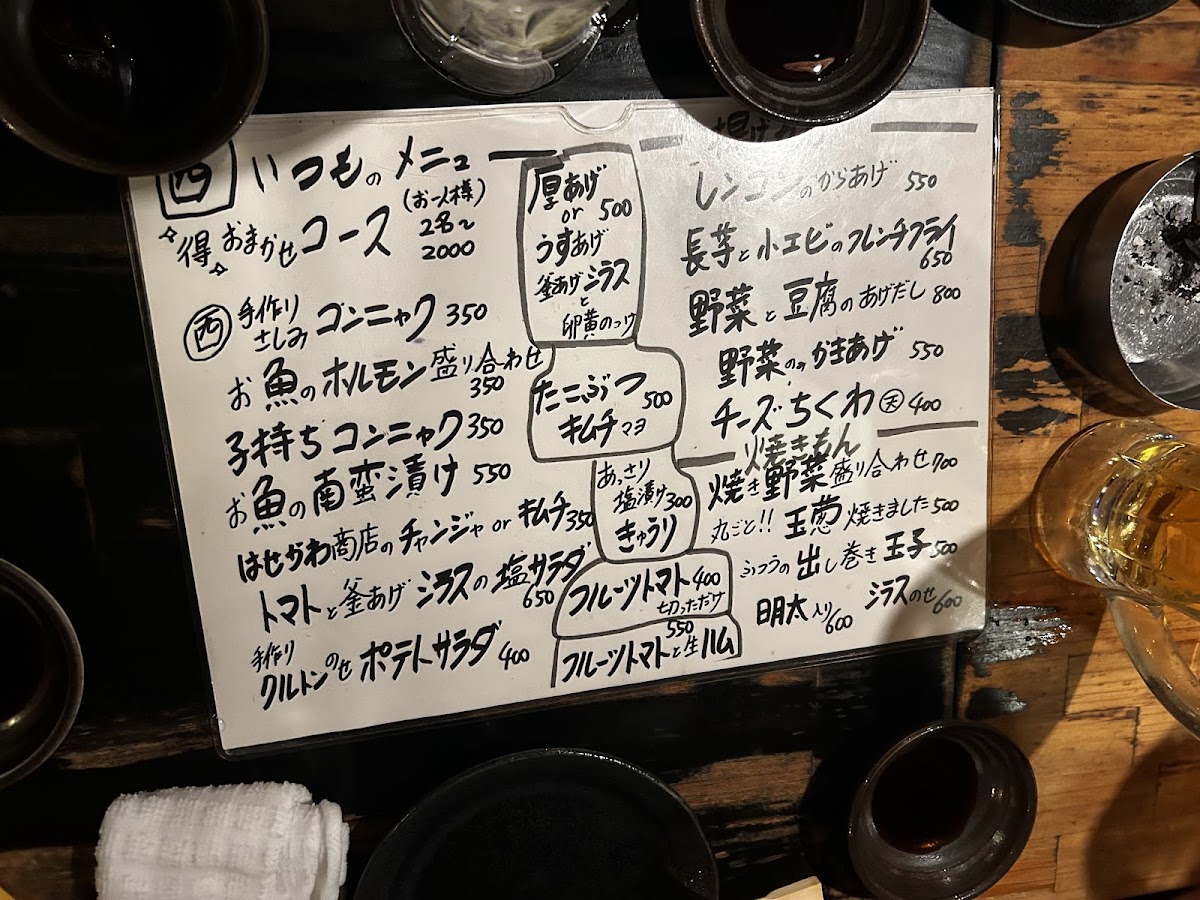 西 いつものメニュー
得 おまかせコース (お一人様) 2名〜 2000
西 手作り さしみ コンニャク 350
お魚のホルモン盛り合わせ 350
子持ちコンニャク 350
お魚の南蛮漬け 550
はせがわ商店のチャンジャ or キムチ 350
トマトと釜あげシラスの塩サラダ 650
手作り クルトンのせ ポテトサラダ 400
厚あげ
or 500
うすあげ
釜あげシラス
と
卵黄のっけ
たこぶつ 500
キムチマヨ
あっさり
塩漬け 300
きゅうり
フルーツトマト 400
切っただけ
550
フルーツトマトと生ハム
レンコンのからあげ 550
長芋と小エビのフレンチフライ 650
野菜と豆腐のあげだし 800
野菜のみかきあげ 550
チーズちくわ 天 400
焼きもん
焼き野菜盛り合わせ 700
丸ごと!! 玉葱焼きました 500
ふつうの出し巻き玉子 500
明太入り 600 シラスのせ 600